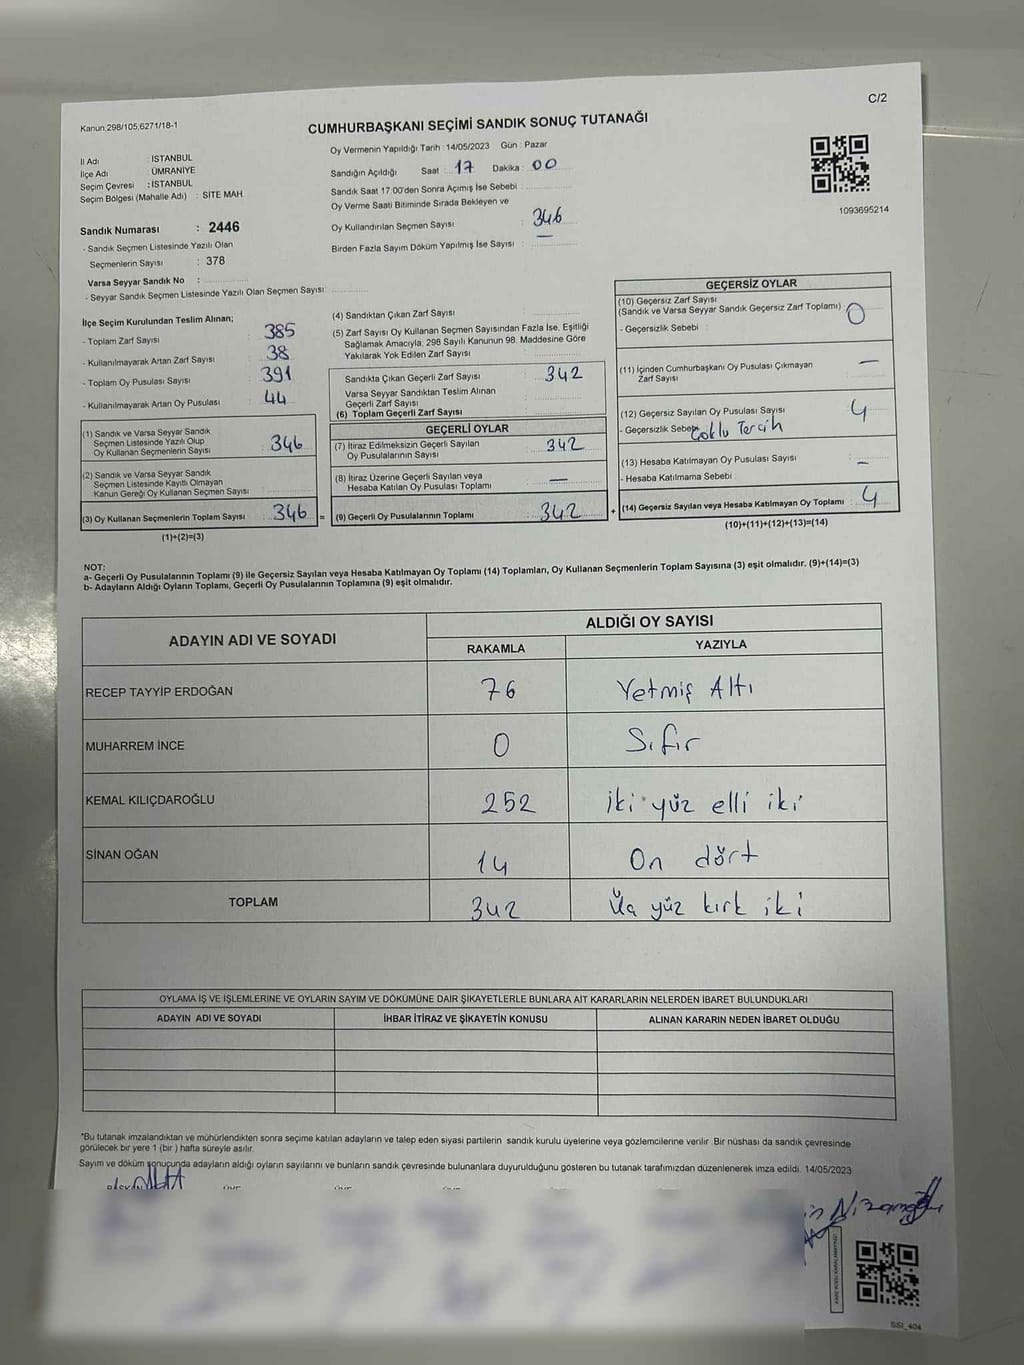 C/2
Kanun,298/105,6271/18-1
CUMHURBAŞKANI SEÇİMİ SANDIK SONUÇ TUTANAĞI
İl Adı : İSTANBUL
İlçe Adı : ÜMRANİYE
Seçim Çevresi : İSTANBUL
Seçim Bölgesi (Mahalle Adı) : SİTE MAH.
Sandık Numarası : 2446
- Sandık Seçmen Listesinde Yazılı Olan
Seçmenlerin Sayısı : 378
Varsa Seyyar Sandık No :
- Seyyar Sandık Seçmen Listesinde Yazılı Olan Seçmen Sayısı:
Oy Vermenin Yapıldığı Tarih : 14/05/2023 Gün : Pazar
Sandığın Açıldığı Saat : 17 Dakika : 00
Sandık Saat 17:00'den Sonra Açımış İse Sebebi :
Oy Verme Saati Bitiminde Sırada Bekleyen ve
Oy Kullandırılan Seçmen Sayısı : 346
Birden Fazla Sayım Döküm Yapılmış İse Sayısı : —
1093695214
İlçe Seçim Kurulundan Teslim Alınan;
- Toplam Zarf Sayısı : 385
- Kullanılmayarak Artan Zarf Sayısı : 38
- Toplam Oy Pusulası Sayısı : 391
- Kullanılmayarak Artan Oy Pusulası : 44
(1) Sandık ve Varsa Seyyar Sandık
Seçmen Listesinde Yazılı Olup
Oy Kullanan Seçmenlerin Sayısı : 346
(2) Sandık ve Varsa Seyyar Sandık
Seçmen Listesinde Kayıtlı Olmayan
Kanun Gereği Oy Kullanan Seçmen Sayısı :
(3) Oy Kullanan Seçmenlerin Toplam Sayısı : 346 =
(1)+(2)=(3)
(4) Sandıktan Çıkan Zarf Sayısı :
(5) Zarf Sayısı Oy Kullanan Seçmen Sayısından Fazla İse, Eşitliği
Sağlamak Amacıyla, 298 Sayılı Kanunun 98. Maddesine Göre
Yakılarak Yok Edilen Zarf Sayısı :
Sandıkta Çıkan Geçerli Zarf Sayısı : 342
Varsa Seyyar Sandıktan Teslim Alınan
Geçerli Zarf Sayısı :
(6) Toplam Geçerli Zarf Sayısı :
GEÇERLİ OYLAR
(7) İtiraz Edilmeksizin Geçerli Sayılan
Oy Pusulalarının Sayısı : 342
(8) İtiraz Üzerine Geçerli Sayılan veya
Hesaba Katılan Oy Pusulası Toplamı : —
(9) Geçerli Oy Pusulalarının Toplamı : 342 +
GEÇERSİZ OYLAR
(10) Geçersiz Zarf Sayısı
(Sandık ve Varsa Seyyar Sandık Geçersiz Zarf Toplamı) : 0
- Geçersizlik Sebebi :
(11) İçinden Cumhurbaşkanı Oy Pusulası Çıkmayan
Zarf Sayısı : —
(12) Geçersiz Sayılan Oy Pusulası Sayısı : 4
- Geçersizlik Sebebi : Çoklu Tercih
(13) Hesaba Katılmayan Oy Pusulası Sayısı : —
- Hesaba Katılmama Sebebi :
(14) Geçersiz Sayılan veya Hesaba Katılmayan Oy Toplamı : 4
(10)+(11)+(12)+(13)=(14)
NOT:
a- Geçerli Oy Pusulalarının Toplamı (9) ile Geçersiz Sayılan veya Hesaba Katılmayan Oy Toplamı (14) Toplamları, Oy Kullanan Seçmenlerin Toplam Sayısına (3) eşit olmalıdır. (9)+(14)=(3)
b- Adayların Aldığı Oyların Toplamı, Geçerli Oy Pusulalarının Toplamına (9) eşit olmalıdır.
ADAYIN ADI VE SOYADI
ALDIĞI OY SAYISI
RAKAMLA YAZIYLA
RECEP TAYYİP ERDOĞAN 76 Yetmiş Altı
MUHARREM İNCE 0 Sıfır
KEMAL KILIÇDAROĞLU 252 iki yüz elli iki
SİNAN OĞAN 14 On dört
TOPLAM 342 Üç yüz kırk iki
OYLAMA İŞ VE İŞLEMLERİNE VE OYLARIN SAYIM VE DÖKÜMÜNE DAİR ŞİKAYETLERLE BUNLARA AİT KARARLARIN NELERDEN İBARET BULUNDUKLARI
ADAYIN ADI VE SOYADI İHBAR İTİRAZ VE ŞİKAYETİN KONUSU ALINAN KARARIN NEDEN İBARET OLDUĞU
*Bu tutanak imzalandıktan ve mühürlendikten sonra seçime katılan adayların ve talep eden siyasi partilerin sandık kurulu üyelerine veya gözlemcilerine verilir. Bir nüshası da sandık çevresinde
görülecek bir yere 1 (bir) hafta süreyle asılır.
Sayım ve döküm sonucunda adayların aldığı oyların sayılarını ve bunların sandık çevresinde bulunanlara duyurulduğunu gösteren bu tutanak tarafımızdan düzenlenerek imza edildi. 14/05/2023
SSI_404